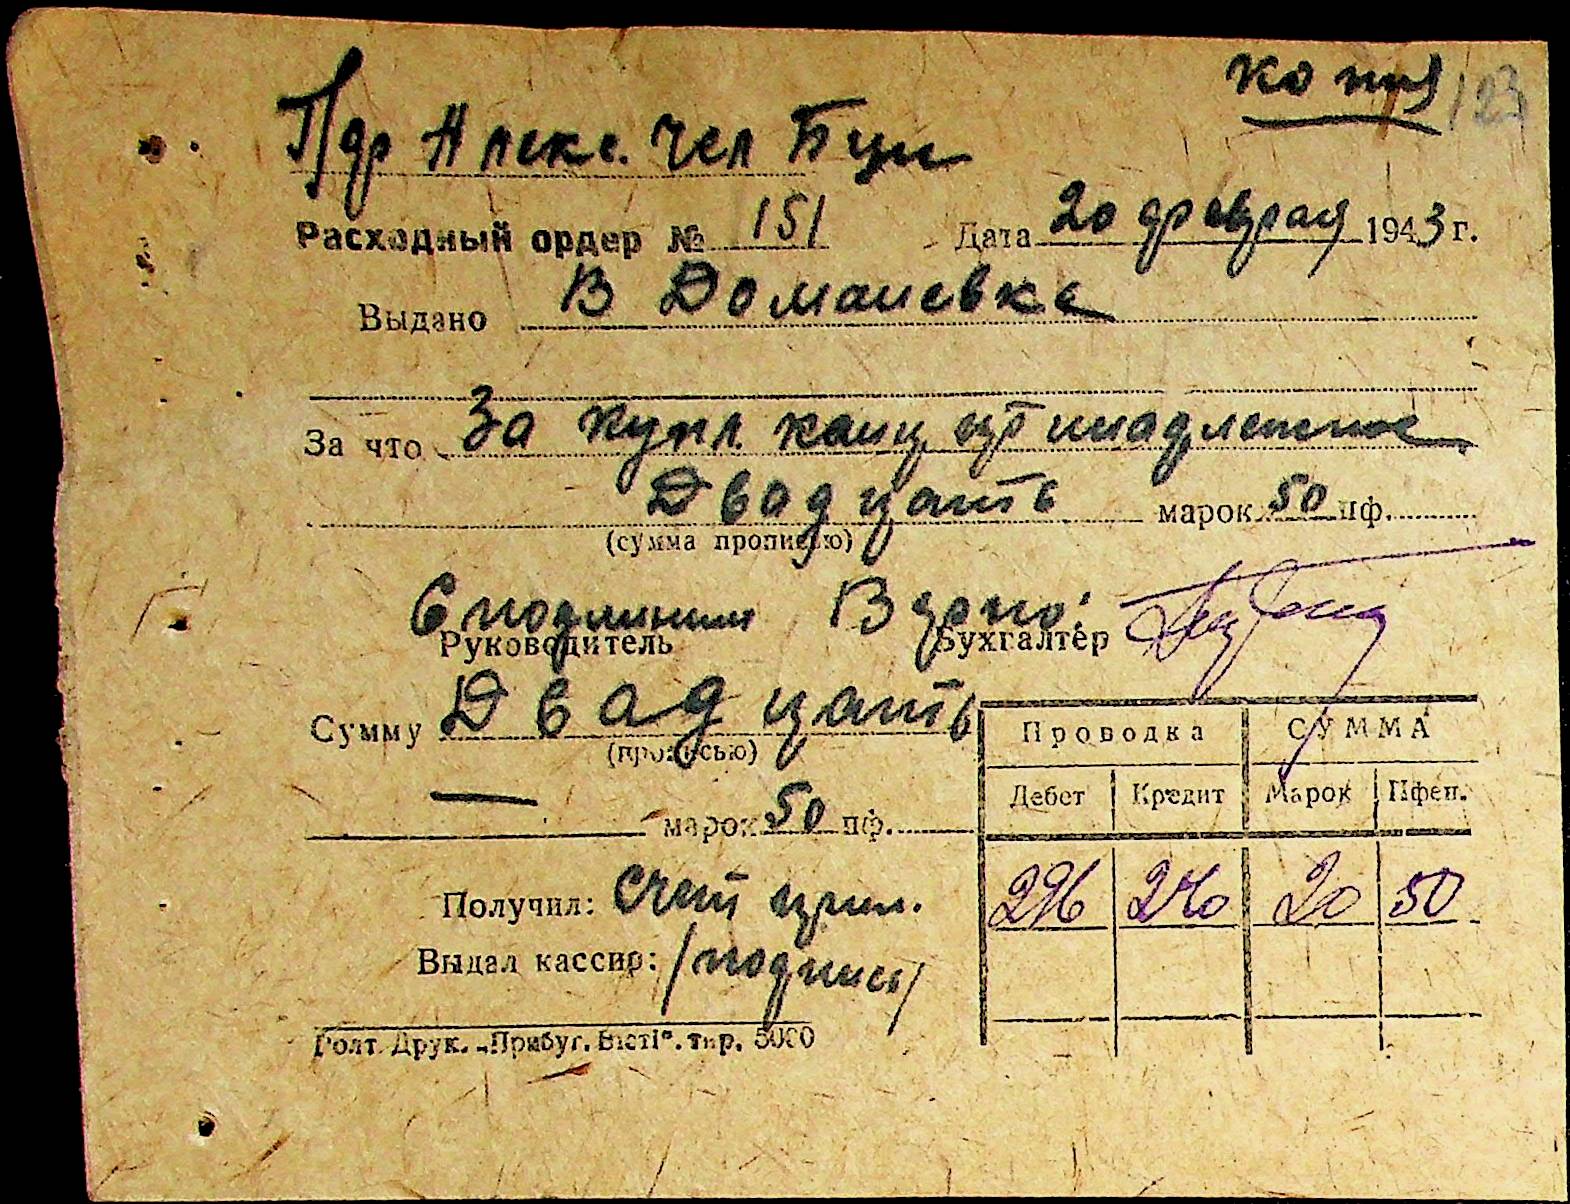 копия 123
Пдр Алекс.
Расходный ордер № 151 Дата 20 февраля 1943 г.
Выдано В Доманевке
За что За купл. канц принадлежние
Двадцать марок 50 пф.
(сумма прописью)
С подлинным Верно:
Руководитель Бухгалтер
Сумму Двадцать
(прописью)
— марок 50 пф.
Проводка СУММА
Дебет Кредит Марок Пфен.
296 240 20 50
Получил: Счет прил.
Выдал кассир: /подпись/
Голт. Друк. „Прибуг. Вісті“. тир. 5000